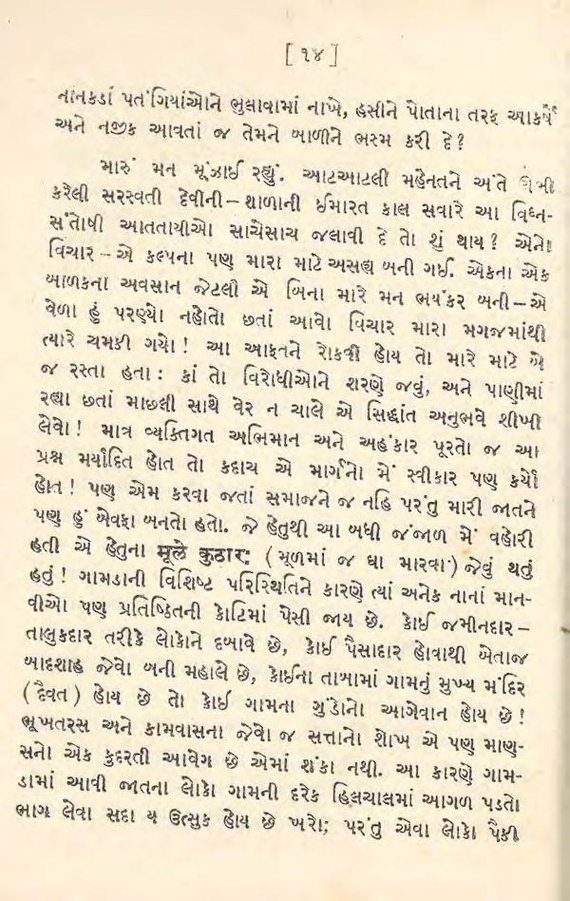 [ ૧૪ ]
નાનકડાં પતંગિયાંઓને ભુલાવામાં નાખે, હસીને પોતાના તરફ આકર્ષે
અને નજીક આવતાં જ તેમને બાળીને ભસ્મ કરી દે?
મારું મન મૂંઝાઈ રહ્યું. આટઆટલી મહેનતને અંતે ઊભી
કરેલી સરસ્વતી દેવીની – શાળાની ઈમારત કાલ સવારે આ વિઘ્ન-
સંતોષી આતતાયીઓ સાચેસાચ જલાવી દે તો શું થાય? એનો
વિચાર – એ કલ્પના પણ મારા માટે અસહ્ય બની ગઈ. એકના એક
બાળકના અવસાન જેટલી એ બિના મારે મન ભયંકર બની – એ
વેળા હું પરણ્યો નહોતો છતાં આવો વિચાર મારા મગજમાંથી
ત્યારે ચમકી ગયો! આ આફતને રોકવી હોય તો મારે માટે બે
જ રસ્તા હતા: કાં તો વિરોધીઓને શરણે જવું, અને પાણીમાં
રહ્યા છતાં માછલી સાથે વેર ન ચાલે એ સિદ્ધાંત અનુભવે શીખી
લેવો! માત્ર વ્યક્તિગત અભિમાન અને અહંકાર પૂરતો જ આ
પ્રશ્ન મર્યાદિત હોત તો કદાચ એ માર્ગનો મેં સ્વીકાર પણ કર્યો
હોત! પણ એમ કરવા જતાં સમાજને જ નહિ પરંતુ મારી જાતને
પણ હું બેવફા બનતો હતો. જે હેતુથી આ બધી જંજાળ મેં વહોરી
હતી એ હેતુના મૂલે कुठारः (મૂળમાં જ ઘા મારવા) જેવું થતું
હતું! ગામડાની વિશિષ્ટ પરિસ્થિતિને કારણે ત્યાં અનેક નાનાં માન-
વીઓ પણ પ્રતિષ્ઠિતની કોટિમાં પેસી જાય છે. કોઈ જમીનદાર –
તાલુકદાર તરીકે લોકોને દબાવે છે, કોઈ પૈસાદાર હોવાથી બેતાજ
બાદશાહ જેવો બની મહાલે છે, કોઈના તાબામાં ગામનું મુખ્ય મંદિર
(દૈવત) હોય છે તો કોઈ ગામના ગુંડાનો આગેવાન હોય છે!
ભૂખતરસ અને કામવાસના જેવો જ સત્તાનો શોખ એ પણ માણ-
સનો એક કુદરતી આવેગ છે એમાં શંકા નથી. આ કારણે ગામ-
ડામાં આવી જાતના લોકો ગામની દરેક હિલચાલમાં આગળ પડતો
ભાગ લેવા સદા ય ઉત્સુક હોય છે ખરો; પરંતુ એવા લોકો પૈકી